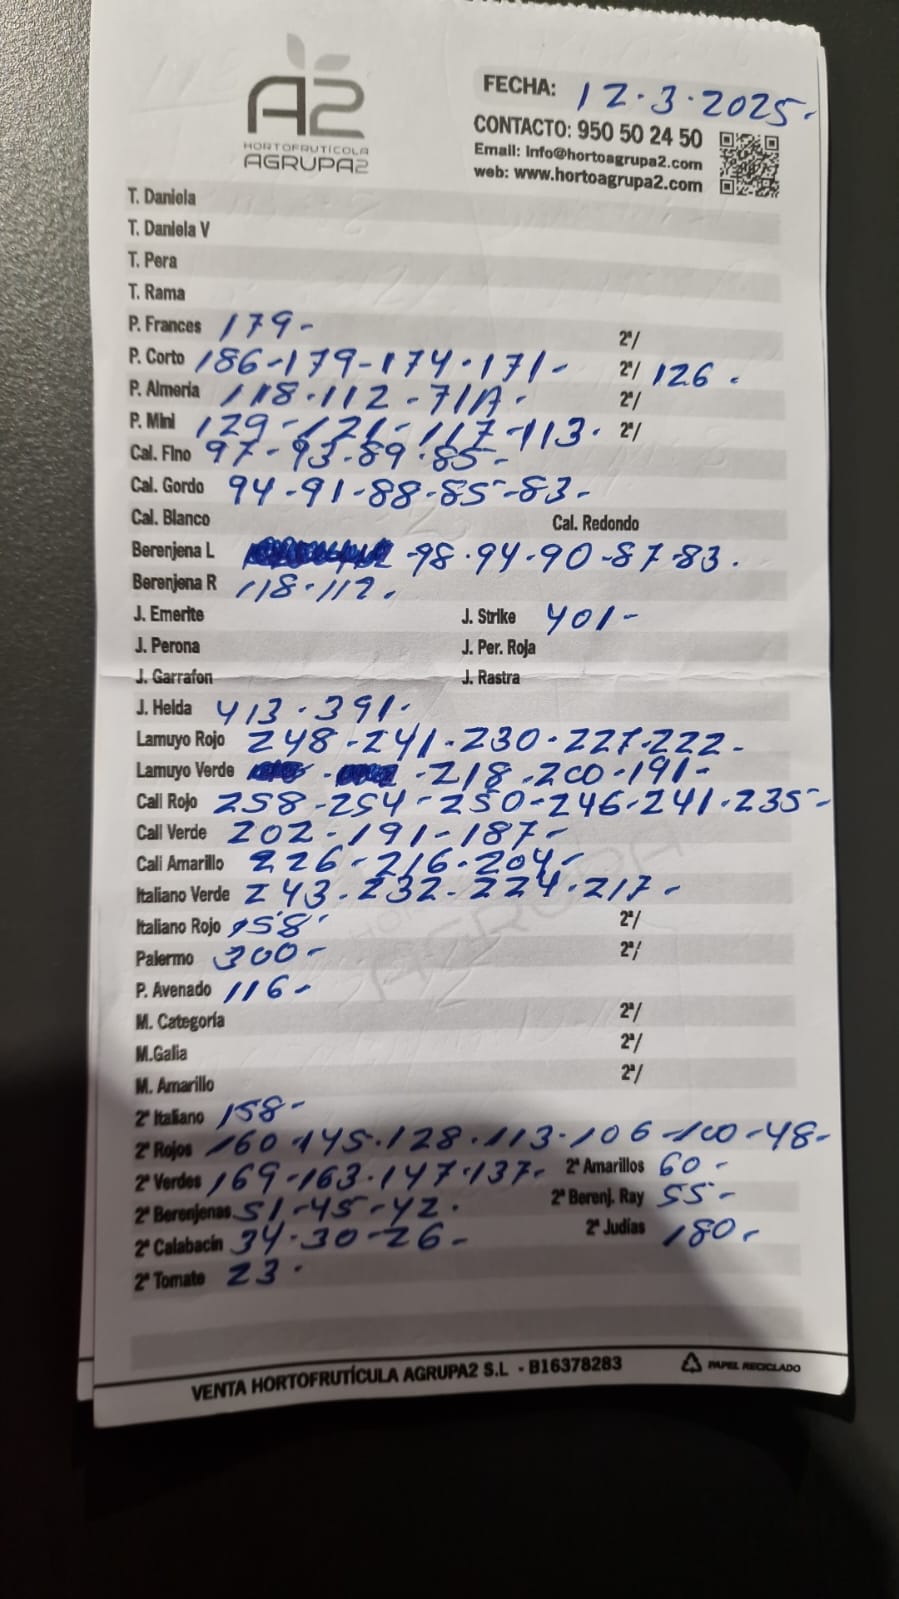 A2
HORTOFRUTICOLA
AGRUPA2
FECHA: 12.3.2025-
CONTACTO: 950 50 24 50
Email: info@hortoagrupa2.com
web: www.hortoagrupa2.com
T. Daniela
T. Daniela V
T. Pera
T. Rama
P. Frances 179- 2ª/
P. Corto 186-179-174.171- 2ª/ 126.
P. Almería 118.112-71A. 2ª/
P. Mini 129-121-117-113. 2ª/
Cal. Fino 97-93.89.85-
Cal. Gordo 94-91-88-85-83-
Cal. Blanco Cal. Redondo
Berenjena L -98.94-90-87-83.
Berenjena R 118.112.
J. Emerite J. Strike 401-
J. Perona J. Per. Roja
J. Garrafon J. Rastra
J. Helda 413.391.
Lamuyo Rojo 248-241-230-227-222-
Lamuyo Verde -218-200-191-
Cali Rojo 258-254-250-246-241.235-
Cali Verde 202-191-187-
Cali Amarillo 226-216.204-
Italiano Verde 243-232-224.217-
Italiano Rojo 158- 2ª/
Palermo 300- 2ª/
P. Avenado 116-
M. Categoría 2ª/
M.Galia 2ª/
M. Amarillo 2ª/
2ª Italiano 158-
2ª Rojos 160-145.128.113.106-100-48-
2ª Verdes 169-163.147.137- 2ª Amarillos 60-
2ª Berenjenas 51-45-42. 2ª Berenj. Ray 55-
2ª Calabacín 34.30-26- 2ª Judías 180-
2ª Tomate 23.
VENTA HORTOFRUTÍCULA AGRUPA2 S.L - B16378283
PAPEL RECICLADO